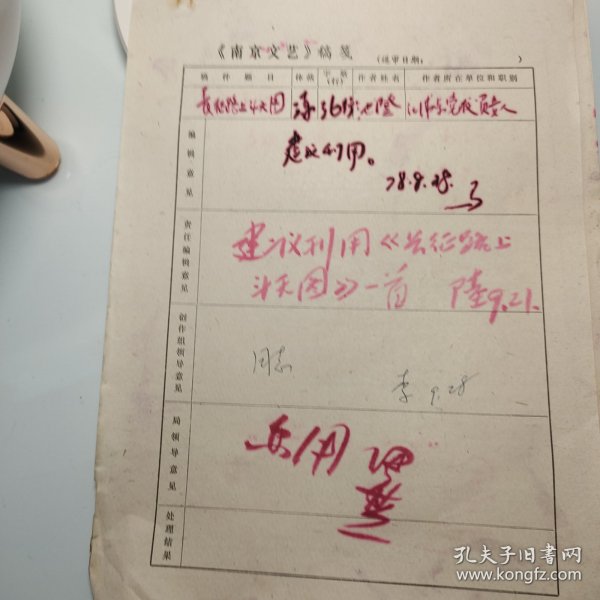 《南京文艺》稿笺
（送审日期：　　）
稿件题目 体裁 字数（行） 作者姓名 作者所在单位和职别
长征路上斗天图 诗 36行
编辑意见
建议利用。
78.9.25.
责任编辑意见
建议利用《长征路上
斗天图》一首 陆9.21.
创作组领导意见
同意
李 9.28
局领导意见
处理结果
孔夫子旧书网
www.kongfz.com